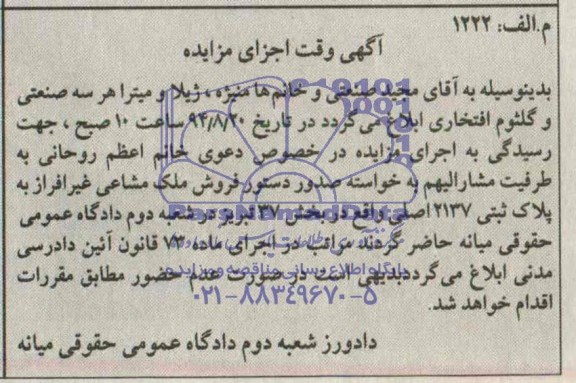 م.الف: ۱۲۲۲
آگهی وقت اجرای مزایده
بدینوسیله به آقای مجید صنعتی و خانم ها منیژه، ژیلا و میترا هر سه صنعتی
و گلثوم افتخاری ابلاغ می گردد در تاریخ ۹۴/۸/۲۰ ساعت ۱۰ صبح ، جهت
رسیدگی به اجرای مزایده در خصوص دعوی خانم اعظم روحانی به
طرفیت مشارالیهم به خواسته صدور دستور فروش ملک مشاعی غیرافراز به
پلاک ثبتی ۲۱۳۷ اصلی واقع در بخش ۳۷ تبریز در شعبه دوم دادگاه عمومی
حقوقی میانه حاضر گردند مراتب در اجرای ماده ۷۳ قانون آئین دادرسی
مدنی ابلاغ می گردد بدیهی است در صورت عدم حضور مطابق مقررات
اقدام خواهد شد.
دادورز شعبه دوم دادگاه عمومی حقوقی میانه
ParsNamadData
پایگاه اطلاع رسانی مناقصه و مزایده
۰۲۱-۸۸۳۴۹۶۷۰-۵